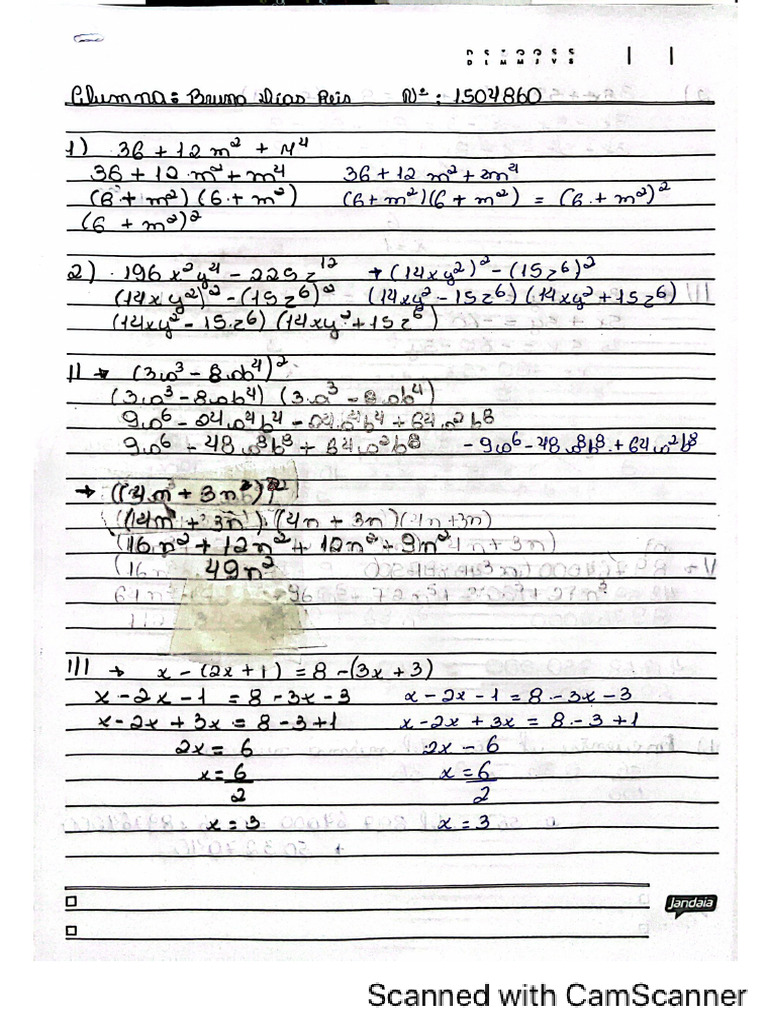 D S T Q Q S S
D L M M J V S
Alumna: Bruna Dias Reis Nº: 1504860
1) 36 + 12 m² + M⁴
36 + 12 m² + m⁴ 36 + 12 m² + m⁴
(6 + m²) (6 + m²) (6 + m²)(6 + m²) = (6 + m²)²
(6 + m²)²
2) 196 x²y⁴ - 225 z¹² → (14xy²)² - (15z⁶)²
(14xy²)² - (15z⁶)² (14xy² - 15z⁶) (14xy² + 15z⁶)
(14xy² - 15z⁶) (14xy² + 15z⁶)
II → (3a³ - 8ab⁴)²
(3a³ - 8ab⁴) (3a³ - 8ab⁴)
9a⁶ - 24a⁴b⁴ - 24a⁴b⁴ + 64a²b⁸
9a⁶ - 48a⁸b⁸ + 64a²b⁸ - 9a⁶ - 48a⁸b⁸ + 64a²b⁸
→
(16n² + 12n² + 12n² + 9n²
49n²
III → x - (2x + 1) = 8 - (3x + 3)
x - 2x - 1 = 8 - 3x - 3 x - 2x - 1 = 8 - 3x - 3
x - 2x + 3x = 8 - 3 + 1 x - 2x + 3x = 8 - 3 + 1
2x = 6 2x - 6
x = 6 x = 6
2 2
x = 3 x = 3
Jandaia
Scanned with CamScanner